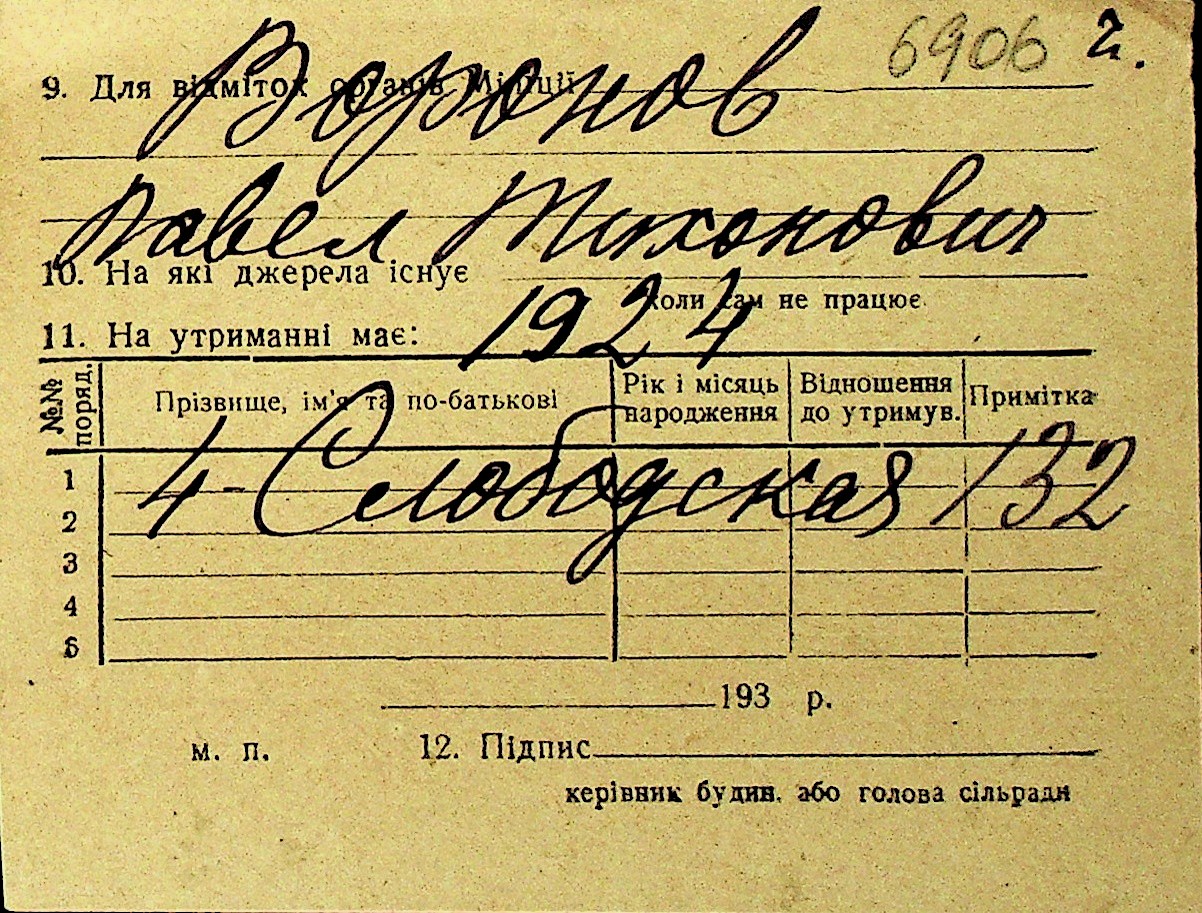 6906 г.
9. Для відміток органів Міліції
Воронов
Павел Тихонович
10. На які джерела існує
коли сам не працює
11. На утриманні має:
1924
№№ поряд. Прізвище, ім'я та по-батькові Рік і місяць народження Відношення до утримув. Примітка
4-Слободская 132
1
2
3
4
5
193 р.
м. п. 12. Підпис
керівник будин. або голова сільради